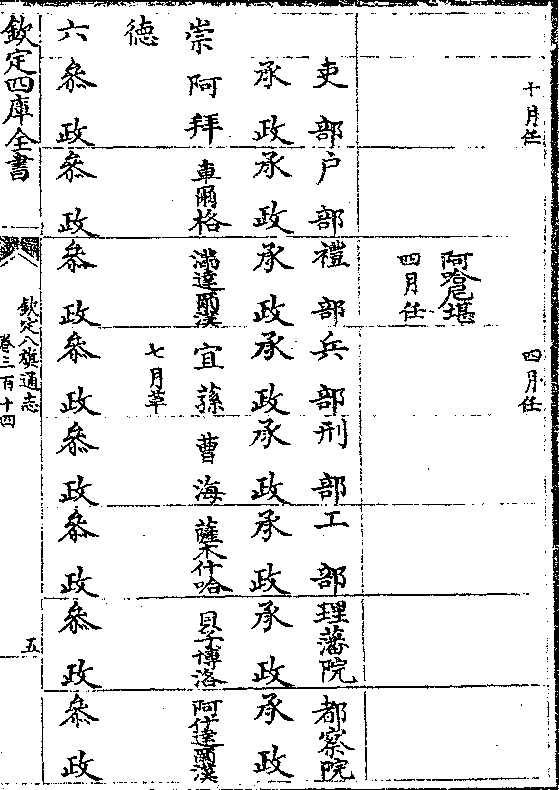 十月任 四月任
阿哈尼堪
四月任
吏部 户部 禮部 兵部 刑部 工部 理藩院 都察院
承政 承政 承政 承政 承政 承政 承政 承政
崇 阿拜 車爾格 滿達爾漢 宜蓀 曹海 薩木什哈 貝子博洛 阿什達爾漢
德 七月革
六 叅政 叅政 叅政 叅政 叅政 叅政 叅政 叅政
欽定四庫全書
欽定八旗通志
卷三百十四
五